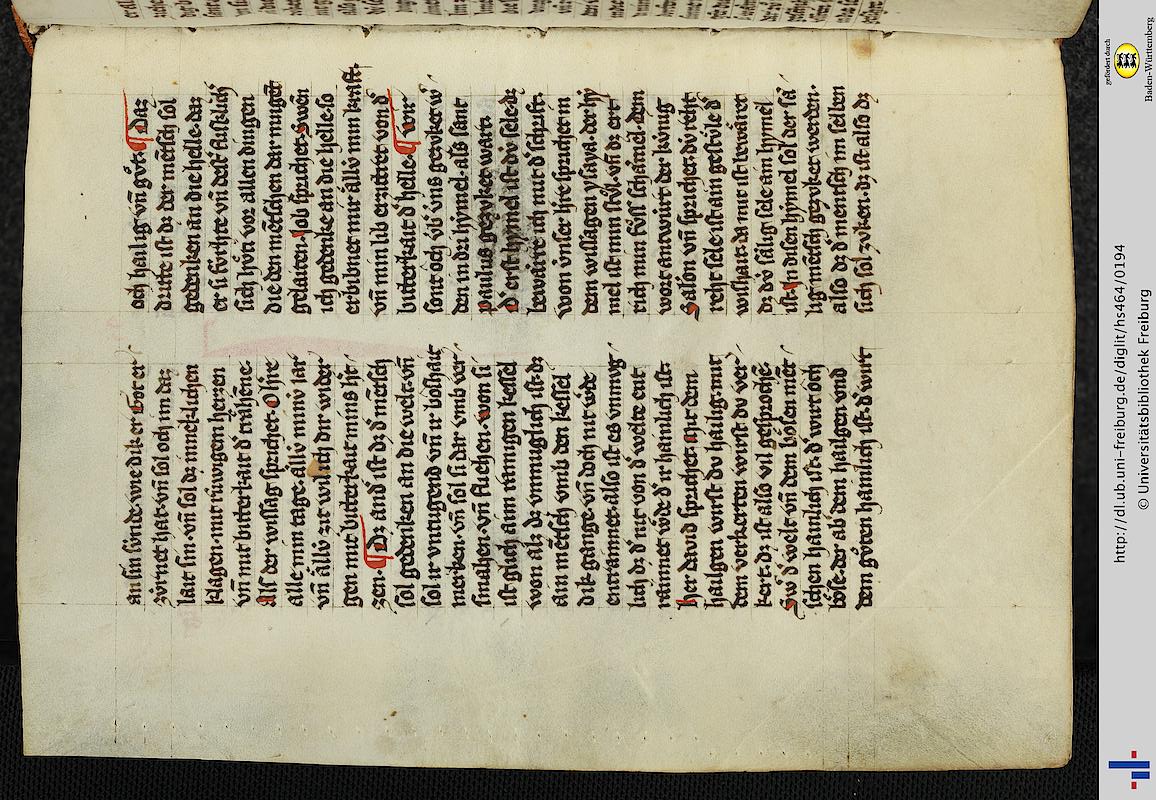 an sin sünde wie dik er Got er
zürnet hat. vn̄ sol och im daz
lait sin. vn̄ sol dz inneklichen
klagen. mit rüwigem herzen
vn̄ mit bitterkait d' trähene.
Als der wissag sprichet. O h're
alle min tage. ällv minv iar
vn̄ ällv zit wil ich dir wider
gen mit bitterkait mins h'
zen. ¶ Dz and' ist dz d' mēsch
sol gedenken an die welt. vn̄
sol ir vntugend vn̄ ir boshait
merken. vn̄ sol si dar vmb ver
smahen. vn̄ fluchen. won si
ist glich aim rämigen kessel
won als dz vnmuglich ist. dz
ain mēsch vmb den kessel
dik gange. vn̄ doch nit w'de
enrämet. also ist es vnmvg
lich dz d' nit von d' welte ent
rainnet w'de d' ir hainlich ist.
her david sprichet. mit dem
hailgen wirst dv hailig. mit
dem verkerten wirst dv ver
kert. dz ist also vil gesprochē.
Sw' d' welt vn̄ dem bösen mēt
schen hainlich ist. d' wirt och
böse. der ab' dem hailgen vnd
dem güten hainlich ist. d' wirt
och hailig. vn̄ güt. ¶ Daz
dritte ist dz der mētsch sol
gedenken an die helle. daz
er si förhte vn̄ dest flislich
sich hüti vor allen dingen
die den mētschen dar mugēt
gelaiten. Iob sprichet. swen
ich gedenke an die helle. so
erbibnet mir ällv min kraft.
vn̄ min lib erzittret von d'
bitterkait d' helle. ¶ wir
sont och vb' vns gezvket w'
den in den hymel. als sant
paulus gezvket wart.
D' erst hymel ist dv sele. dz
bewärre ich mit d' schrift.
Won vnser h're sprichet in
dem wissagen ysaya. der hy
mel ist min stvl. vn̄ dv ert
rich min füss schämel. dem
wort antwurt der künig
Salon vn̄ sprichet. dv reht
reht sele ist ain gestvle d'
wishait. da mit ist bewärt
dz dv sälig sele ain hymel
ist. In disen hymel sol der sä
lig mēsch gezvket werden.
also dz d' mentsch in im selben
sich sol zvken. dz ist also dz
gefördert durch
Baden-Württemberg
http://dl.ub.uni-freiburg.de/diglit/hs464/0194
© Universitätsbibliothek Freiburg